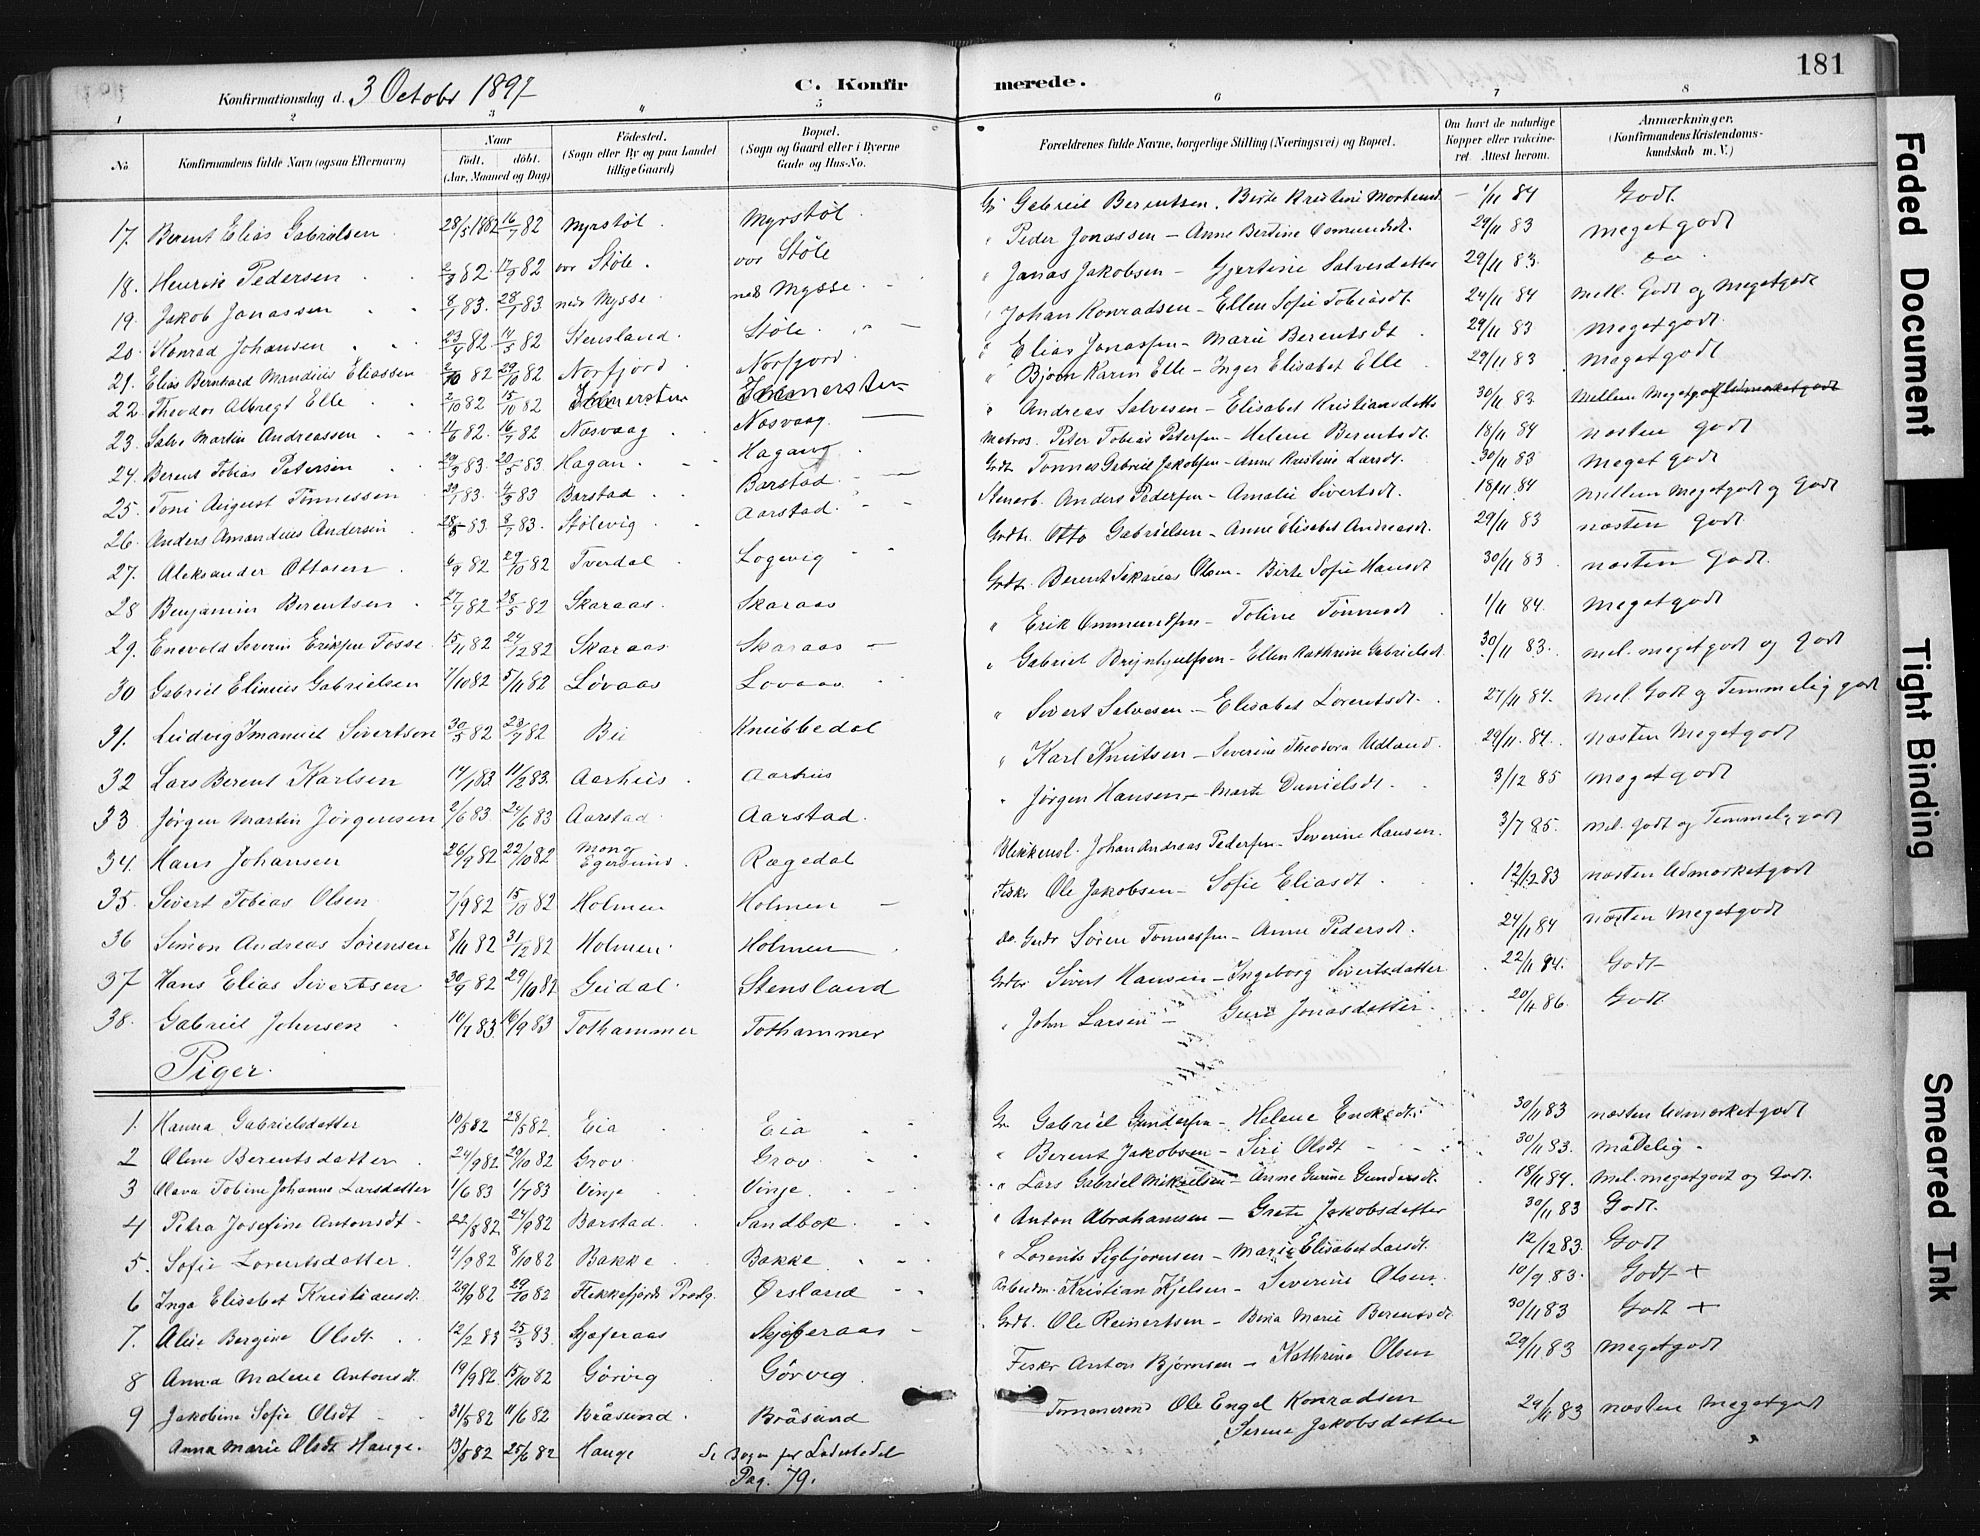 181
Konfirmationsdag d. 3 Octobr 1897
C. Konfirmerede.
1 2 3 4 5 6 7 8
No
Konfirmandens fulde Navn (ogsaa Efternavn)
Naar født. døbt. (Aar, Maaned og Dag)
Fødested. (Sogn eller By og paa Landet tillige Gaard)
Bopæl. (Sogn og Gaard eller i Byerne Gade og Hus-No.
Forældrenes fulde Navne, borgerlige Stilling (Næringsvei) og Bopæl.
Om havt de naturlige Kopper eller vaccineret. Attest herom.
Anmærkninger. (Konfirmandens Kristendomskundskab m. V.)
17. Berent Elias Gabrielsen 28/5 1882 16/7 82 Myrstøl Myrstøl Gabriel Berentsen, Birte Kristine 1/11 84 Godt
18. Henrik Pedersen 82 17/9 82 Støle Støle Peder Jonassen - Anne Bertine 29/11 83 Megetgodt
19. Jakob Jonassen 83. 83 Mysse Mysse Jonas Jakobsen - Gjertine Salvesdatter 29/11 83 do
20. Konrad Johansen 23/4 82 14/5 82 Stensland Støle Johan Konradsen - Ellen Sofie Tobiasdt. 24/11 84 Mell. Godt og Megetgodt
21. Elias Bernhard Mandius Eliassen 2/10 82 29/10 82 Norfjord Norfjord Elias Jonassen - Marie Berentsdt 29/11 83 Megetgodt
22. Theodor Albregt Elle 2/10 82 15/10 82 Bjørn Karin Elle - Inger Elisabet Elle 29/11 83 Megetgodt
23. Salve Martin Andreassen 11/6 82. 16/7 82 Næsvaag Næsvaag Andreas Salvesen - Elisabet Kristiansdatter 30/11 83 Mellem Megetgodt
24. Berent Tobias Petersen 83. 20/5 83 Hagan Matros. Peter Tobias Petersen - Helene Berentsdt. 18/11 84 næsten Godt
25. Toni August Tønnessen 83. 4/3 83 Barstad Barstad Tønnes Gabriel Jakobsen - Anne Kristine Larsdt. 30/11 83 Meget godt
26. Anders Amandius Andersen 83. 8/7 83. Stølevig Aarstad Anders Pedersen - Amalie Sivertsdt. 18/11 84 mellem Megetgodt og Godt
27. Aleksander Ottosen 6/9 82 29/10 82 Tverdal Logevig Otto Gabrielsen - Anne Elisabet Andreasdt. 29/11 83 næsten Godt
28 Benjamin Berentsen 82 28/5 82 Skaraas Skaraas Berent Sakarias Olsen - Birte Sofie Hansdt 30/11 83 næsten Godt.
29. Enevold Severin Eriksen Tosse 15/11 82 24/12 82 Skaraas Skaraas Erik Ommundsen - Toline Tønnesdt 1/11 84. Megetgodt
30 Gabriel Elinius Gabrielsen 7/10 82 5/11 82 Løvaas Lovaas Gabriel Brynhjulfsen - Ellen Kathrine Gabrielsdt. 30/11 83. mel. megetgodt og godt
31. Ludvig Imanuel Sivertsen 30/5 82 23/7 82 Bu Knubbedal Sivert Salvesen - Elisabet Lorentsdt. 27/11 84. mel Godt og Temmelig godt
32 Lars Berent Karlsen 14/1 83. 11/2 83. Aarhus Aarhus Karl Knutsen - Severine Theodora Udland 29/11 84. næsten Megetgodt
33 Jørgen Martin Jørgensen 2/6 83. 24/6 83 Aarstad Aarstad. Jørgen Hansen - Marte Danielsdt. 3/12 85 Megetgodt
34. Hans Johansen 26/9 82 22/10 82 Mong Egersund. Rægedal Blikkensl. Johan Andreas Pedersen - Severine Hansen. 3/7 85. Mel. godt og Temmelig godt
35. Sivert Tobias Olsen 7/9 82 15/10 82 Holmen Holmen Fisker Ole Jakobsen - Sofie Eliasdt 12/12 83 næsten Udmærketgodt
36 Simon Andreas Sørensen 8/11 82 31/12 82 Holmen Holmen do. Gmdr Søren Tønnessen - Anne Pedersdt. 24/11 84 næsten Megetgodt
37 Hans Elias Sivertsen 30/9 82 29/10 82 Geidal Stensland Sivert Hansen - Ingeborg Sivertsdatter 22/11 84. Godt
38. Gabriel Johnsen 10/7 83. 16/9 83 Tothammer Tothammer John Larsen - Guri Jonasdatter 20/11 86 Godt
Piger.
1. Hanna Gabrielsdatter 10/5 82 28/5 82 Eia Eia Gabriel Gundersen - Helene 30/11 83 næsten Udmærketgodt
2 Oline Berentsdatter 24/9 82 29/10 82 Grov Grov Berent Jakobsen - Siri Olsdt 30/11 83. Mådelig
3 Olava Tobine Johanne Larsdatter 1/6 83 1/7 83 Vinje Vinje Lars Gabriel Mikkelsen - Anne Gurine Gundersdt. 18/11 84. Mel. megetgodt og Godt.
4 Petra Josefine Antonsdt 22/8 82 24/9 82 Barstad. Sandbæk Anton Abrahamsen - Grete Jakobsdatter 30/11 83 Godt.
5. Sofie Lorentsdatter 4/9 82 8/10 82 Bakke Bakke Lorents Sigbjørnsen - Marie Elisabet Larsdt. 12/12 83. Godt
6 Inga Elisabet Kristiansdt. 29/9 82 29/10 82 Flekkefjords Prestg. Ørsland Arbeidsm. Kristian Kjelsen - Severine Olsen. 10/9 83. Godt +
7. Aline Bergine Olsdt. 12/2 83 25/3 83. Sjæferaas Skjæferaas Ole Reinertsen - Bina Marie Berentsdt 30/11 83 Godt +
8 Anna Malene Antonsdt. 19/9 82. 15/10 82 Gørvig Gørvig Fisker Anton Bjørnsen - Kathrine Olsen 29/11 83 Megetgodt
9 Jakobine Sofie Olsdt 31/5 82 11/6 82 Bråsund Bråsund Tømmermand Ole Engel Konradsen Serine Jakobsdatter 29/11 83 næsten Megetgodt
Anna Marie Olsdt Hauge. 13/5 82 25/6 82 Hauge Se Bogen for Ladestedet
Pag. 79.
Faded Document
Tight Binding
Smeared Ink